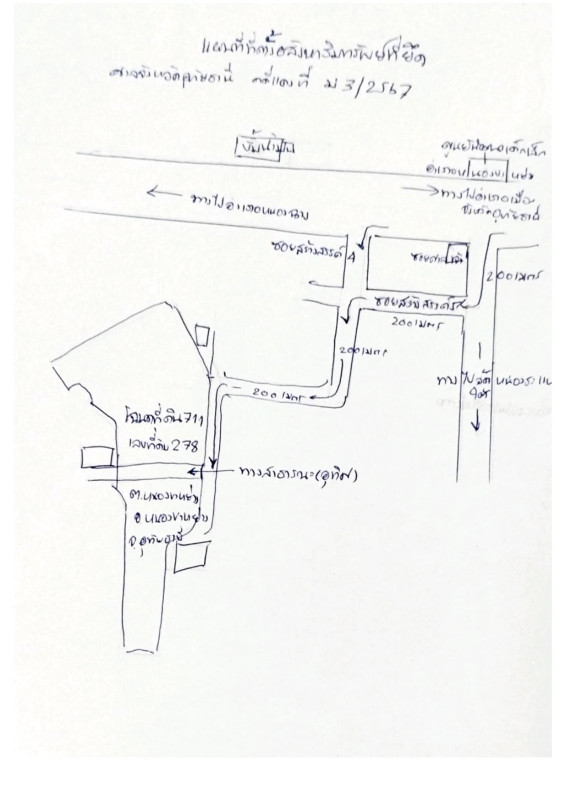 แผนที่ที่ตั้งอสังหาริมทรัพย์ที่ยึด
ศาลจังหวัดอุทัยธานี คดีแดงที่ ม 3/2567
ปั้มน้ำมัน
ศูนย์พัฒนาเด็กเล็ก
อำเภอหนองขาหย่าง
ทางไปอำเภอหนองฉาง
ทางไปอำเภอเมือง
จังหวัดอุทัยธานี
ซอยสร้างสรรค์ 4
ซอย
200 เมตร
ซอยสร้างสรรค์
200 เมตร
200 เมตร
200 เมตร
ทางไปวัดหนองระแ
โฉนดที่ดิน 711
เลขที่ดิน 278
ทางสาธารณะ(อุทิศ)
ต.หนองขาหย่าง
อ.หนองขาหย่าง
จ.อุทัยธานี